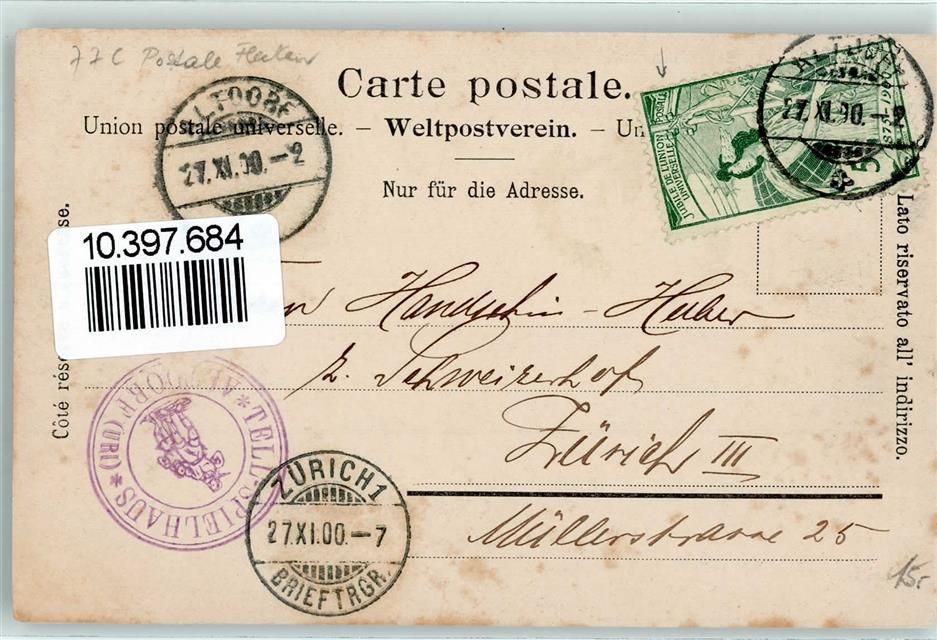 77C Postale Flecken
Carte postale.
Union postale universelle. – Weltpostverein. – Un
Nur für die Adresse.
ALTDORF
27.XI.00.–2
ALTDORF
27.XI.00.–2
JUBILÉ DE L'UNION POSTALE UNIVERSELLE
1875-1900
5
10.397.684
Côté rése
se.
Lato riservato all' indirizzo.
Handschin-Huber
z. Schweizerhof
Zürich III
Müllerstrasse 25
*TELL-SPIELHAUS*
ALTDORF (URI)
ZÜRICH 1
27.XI.00.–7
BRIEFTRGR.
15.-